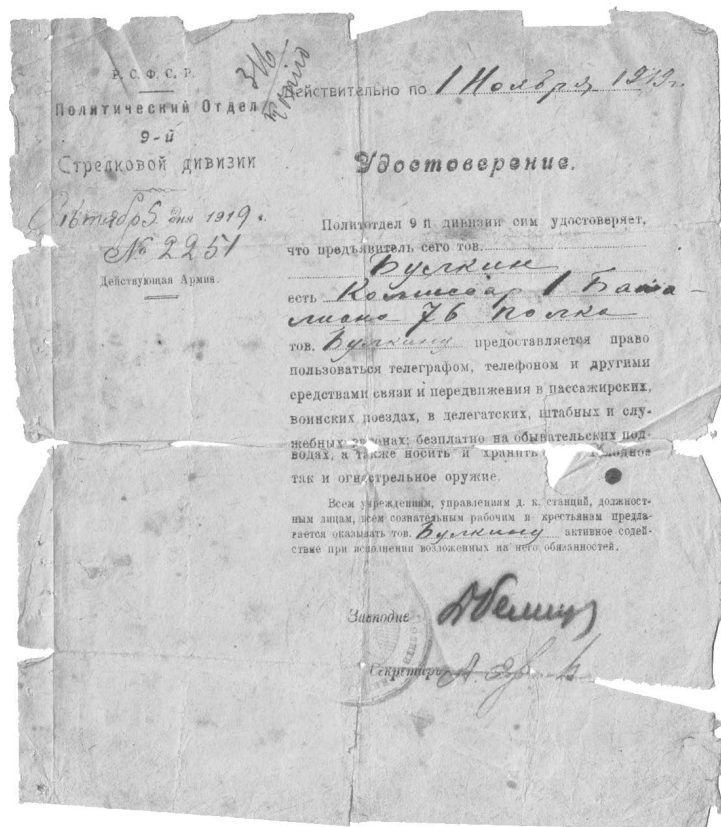 Р. С. Ф. С. Р.
Политический Отдел
9-й
Стрелковой дивизии
5 дня 1919 г.
№ 2251
Действующая Армия.
Действительно по 1 Ноября 1919г.
Удостоверение.
Политотдел 9 й дивизии сим удостоверяет,
что предъявитель сего тов.
Булкин
есть Комиссар 1 Бата-
лиона 76 полка
тов. Булкину предоставляется право
пользоваться телеграфом, телефоном и другими
средствами связи и передвижения в пассажирских,
воинских поездах, в делегатских, штабных и слу-
жебных вагонах; безплатно на обывательских под-
водах, а также носить и хранить
так и огнестрельное оружие.
Всем учреждениям, управлениям д. к. станций, должност-
ным лицам, всем сознательным рабочим и крестьянам предла-
гается оказывать тов. Булкину активное содей-
ствие при исполнении возложенных на него обязанностей.
Завподив
Секретарь